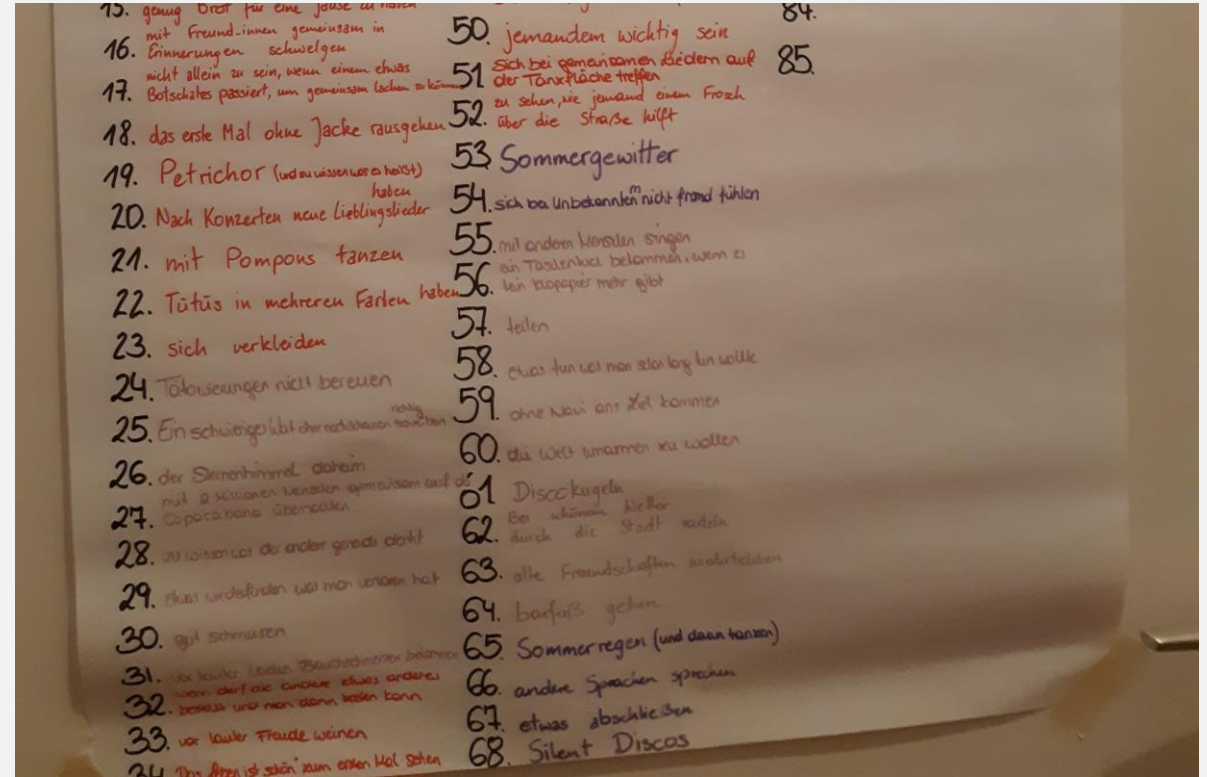 15. genug Brot für eine Jause zu haben
mit Freund-innen gemeinsam in
16. Erinnerungen schwelgen
nicht allein zu sein, wenn einem etwas
17. Botschates passiert, um gemeinsam lachen zu können
18. das erste Mal ohne Jacke rausgehen
19. Petrichor (und zu wissen wie es heißt)
haben
20. Nach Konzerten neue Lieblingslieder
21. mit Pompons tanzen
22. Tütüs in mehreren Farben haben
23. sich verkleiden
24. Tätowierungen nicht bereuen
richtig
25. Ein schwieriges Wort ohne nachschauen schreiben
26. der Sternenhimmel daheim
mit 2 Millionen Menschen gemeinsam auf der
27. Copacabana übernachten
28. zu wissen was der andere gerade denkt
29. etwas wiederfinden was man verloren hat
30. gut schmusen
31. vor lauter Lachen Bauchschmerzen bekommen
wenn der/die andere etwas anderes
32. bestellt und man dann kosten kann
33. vor lauter Freude weinen
34. "Das Leben ist schön" zum ersten Mal sehen
50. jemandem wichtig sein
sich bei gemeinsamen Liedern auf
51 der Tanzfläche treffen
zu sehen, wie jemand einem Frosch
52. über die Straße hilft
53 Sommergewitter
54. sich bei Unbekanntem nicht fremd fühlen
55. mit anderen Menschen singen
ein Taschentuch bekommen, wenn es
56. kein Klopapier mehr gibt
57. teilen
58. etwas tun was man schon lang tun wollte
59. ohne Navi ans Ziel kommen
60. die Welt umarmen zu wollen
61 Discokugeln
Bei schönem Wetter
62. durch die Stadt radeln
63. alte Freundschaften wiederbeleben
64. barfuß gehen
65. Sommerregen (und darin tanzen)
66. andere Sprachen sprechen
67. etwas abschließen
68. Silent Discos
84.
85.